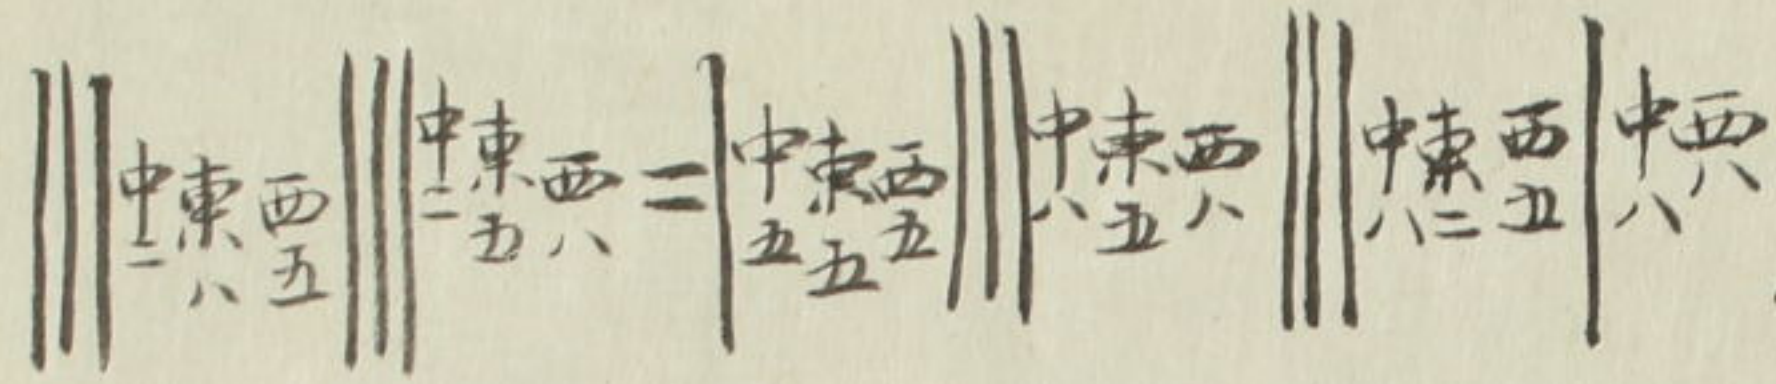 |||中二東八西五|||中二東五西八=|中五東五西五|||中八東五西八|||中八東二西五|中八西八